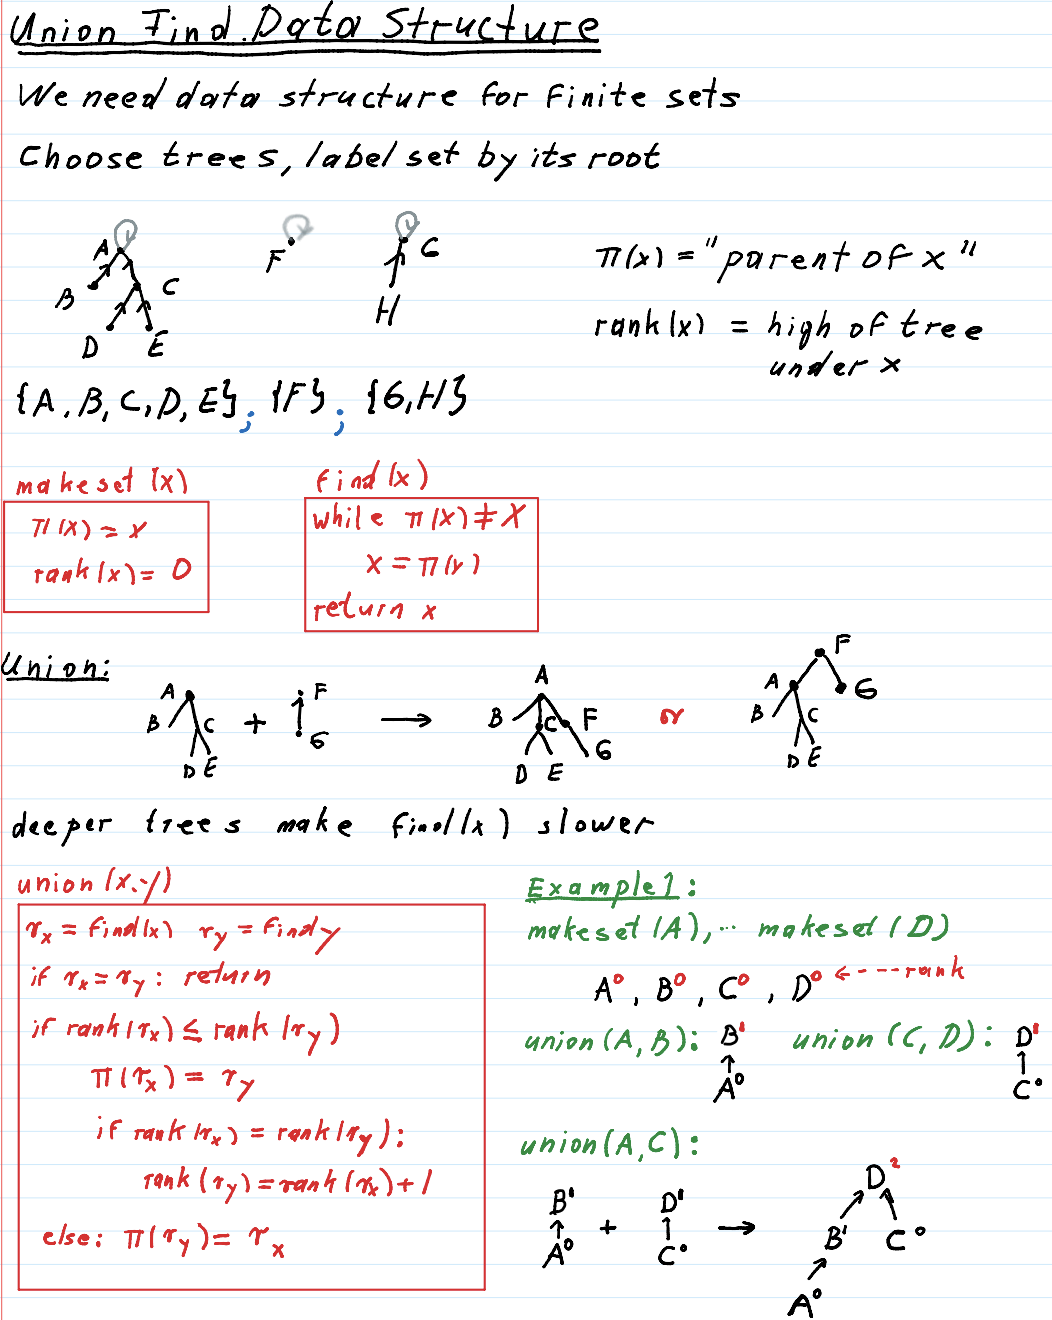 Union Find Data Structure
We need data structure for finite sets
Choose trees, label set by its root
A B C D E
F
G H
π(x) = "parent of x"
rank(x) = high of tree
under x
{A, B, C, D, E}; {F}; {G, H}
makeset (x)
π(x) = x
rank(x) = 0
find (x)
while π(x) ≠ x
x = π(x)
return x
Union:
A B C D E + F G → A B C F D E G or F A G B C D E
deeper trees make find(x) slower
union (x, y)
r_x = find(x) r_y = find y
if r_x = r_y : return
if rank(r_x) ≤ rank(r_y)
π(r_x) = r_y
if rank(r_x) = rank(r_y):
rank(r_y) = rank(r_x) + 1
else: π(r_y) = r_x
Example 1:
makeset (A), ... makeset (D)
A⁰, B⁰, C⁰, D⁰ ←---rank
union (A, B): B¹ ↑ A⁰ union (C, D): D¹ ↑ C⁰
union (A, C):
B¹ ↑ A⁰ + D¹ ↑ C⁰ → D² B¹ C⁰ A⁰